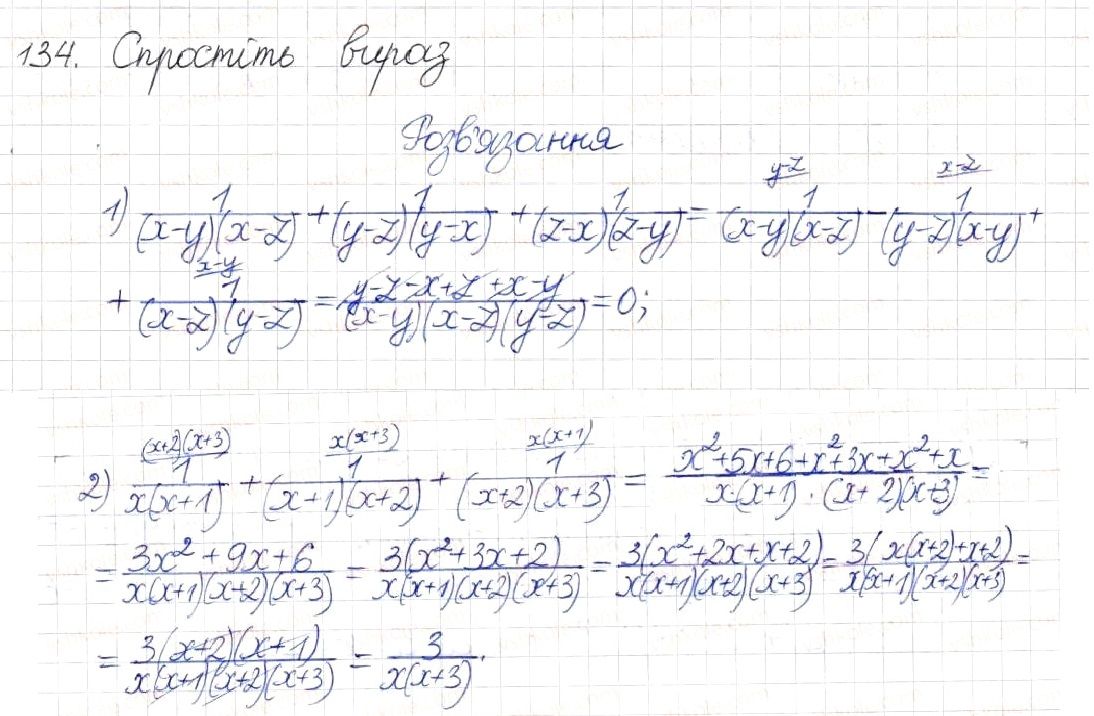 134. Спростіть вираз
Розв'язання
1) 1/((x-y)(x-z)) + 1/((y-z)(y-x)) + 1/((z-x)(z-y)) = (y-z) 1/((x-y)(x-z)) - (x-z) 1/((y-z)(x-y)) +
+ (x-y) 1/((x-z)(y-z)) = (y-z-x+z+x-y)/((x-y)(x-z)(y-z)) = 0;
2) (x+2)(x+3) 1/(x(x+1)) + x(x+3) 1/((x+1)(x+2)) + x(x+1) 1/((x+2)(x+3)) = (x²+5x+6+x²+3x+x²+x)/(x(x+1)·(x+2)(x+3)) =
= (3x²+9x+6)/(x(x+1)(x+2)(x+3)) = 3(x²+3x+2)/(x(x+1)(x+2)(x+3)) = 3(x²+2x+x+2)/(x(x+1)(x+2)(x+3)) = 3(x(x+2)+x+2)/(x(x+1)(x+2)(x+3)) =
= 3(x+2)(x+1)/(x(x+1)(x+2)(x+3)) = 3/(x(x+3)).